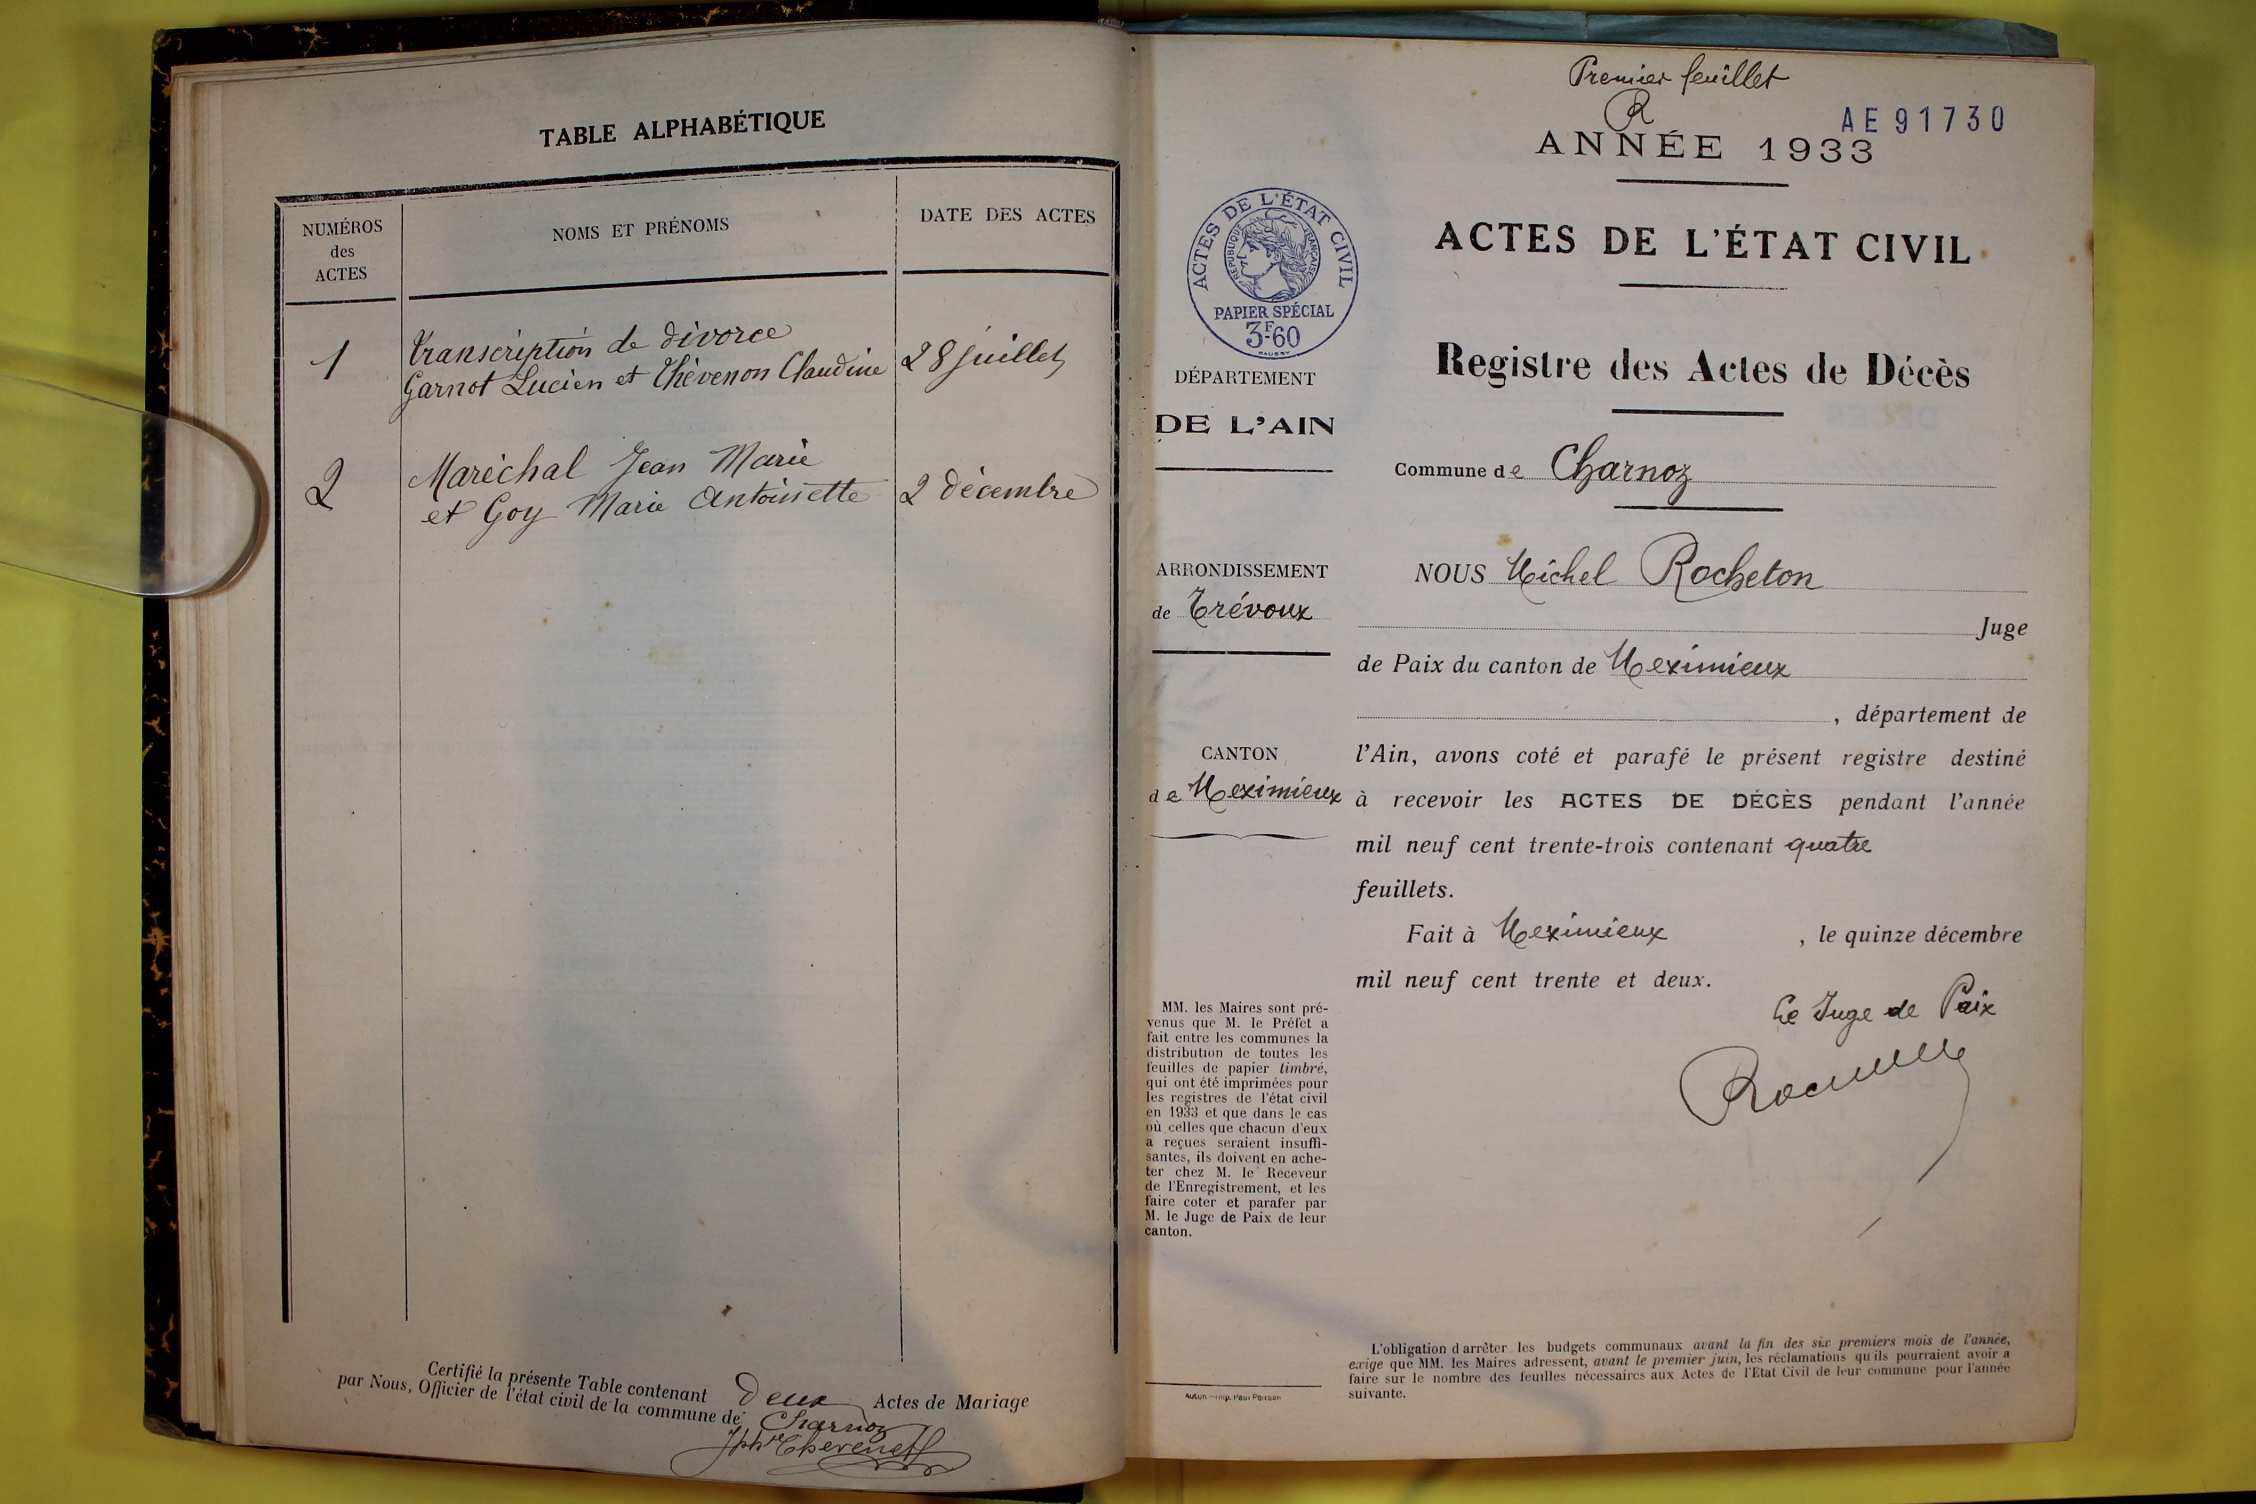 TABLE ALPHABÉTIQUE
NUMÉROS
des
ACTES
NOMS ET PRÉNOMS
DATE DES ACTES
1
Transcription de divorce
Garnot Lucien et Thévenon Claudine
28 juillet
2
Maréchal Jean Marie
et Goy Marie Antoinette
2 décembre
Certifié la présente Table contenant deux Actes de Mariage
par Nous, Officier de l'état civil de la commune de Charnoz
Premier feuillet
R
AE 91730
ANNÉE 1933
ACTES DE L'ÉTAT CIVIL
RÉPUBLIQUE FRANÇAISE
PAPIER SPÉCIAL
3F60
DÉPARTEMENT
DE L'AIN
ARRONDISSEMENT
de Trévoux
CANTON
de Meximieux
MM. les Maires sont pré-
venus que M. le Préfet a
fait entre les communes la
distribution de toutes les
feuilles de papier timbré,
qui ont été imprimées pour
les registres de l'état civil
en 1933 et que dans le cas
où celles que chacun d'eux
a reçues seraient insuffi-
santes, ils doivent en ache-
ter chez M. le Receveur
de l'Enregistrement, et les
faire coter et parafer par
M. le Juge de Paix de leur
canton.
Autun. — Imp. Paul
ACTES DE L'ÉTAT CIVIL
Registre des Actes de Décès
Commune de Charnoz
NOUS Michel Rocheton
Juge
de Paix du canton de Meximieux
, département de
l'Ain, avons coté et parafé le présent registre destiné
à recevoir les ACTES DE DÉCÈS pendant l'année
mil neuf cent trente-trois contenant quatre
feuillets.
Fait à Meximieux , le quinze décembre
mil neuf cent trente et deux.
Le Juge de Paix
L'obligation d'arrêter les budgets communaux avant la fin des six premiers mois de l'année,
exige que MM. les Maires adressent, avant le premier juin, les réclamations qu'ils pourraient avoir à
faire sur le nombre des feuilles nécessaires aux Actes de l'Etat Civil de leur commune pour l'année
suivante.